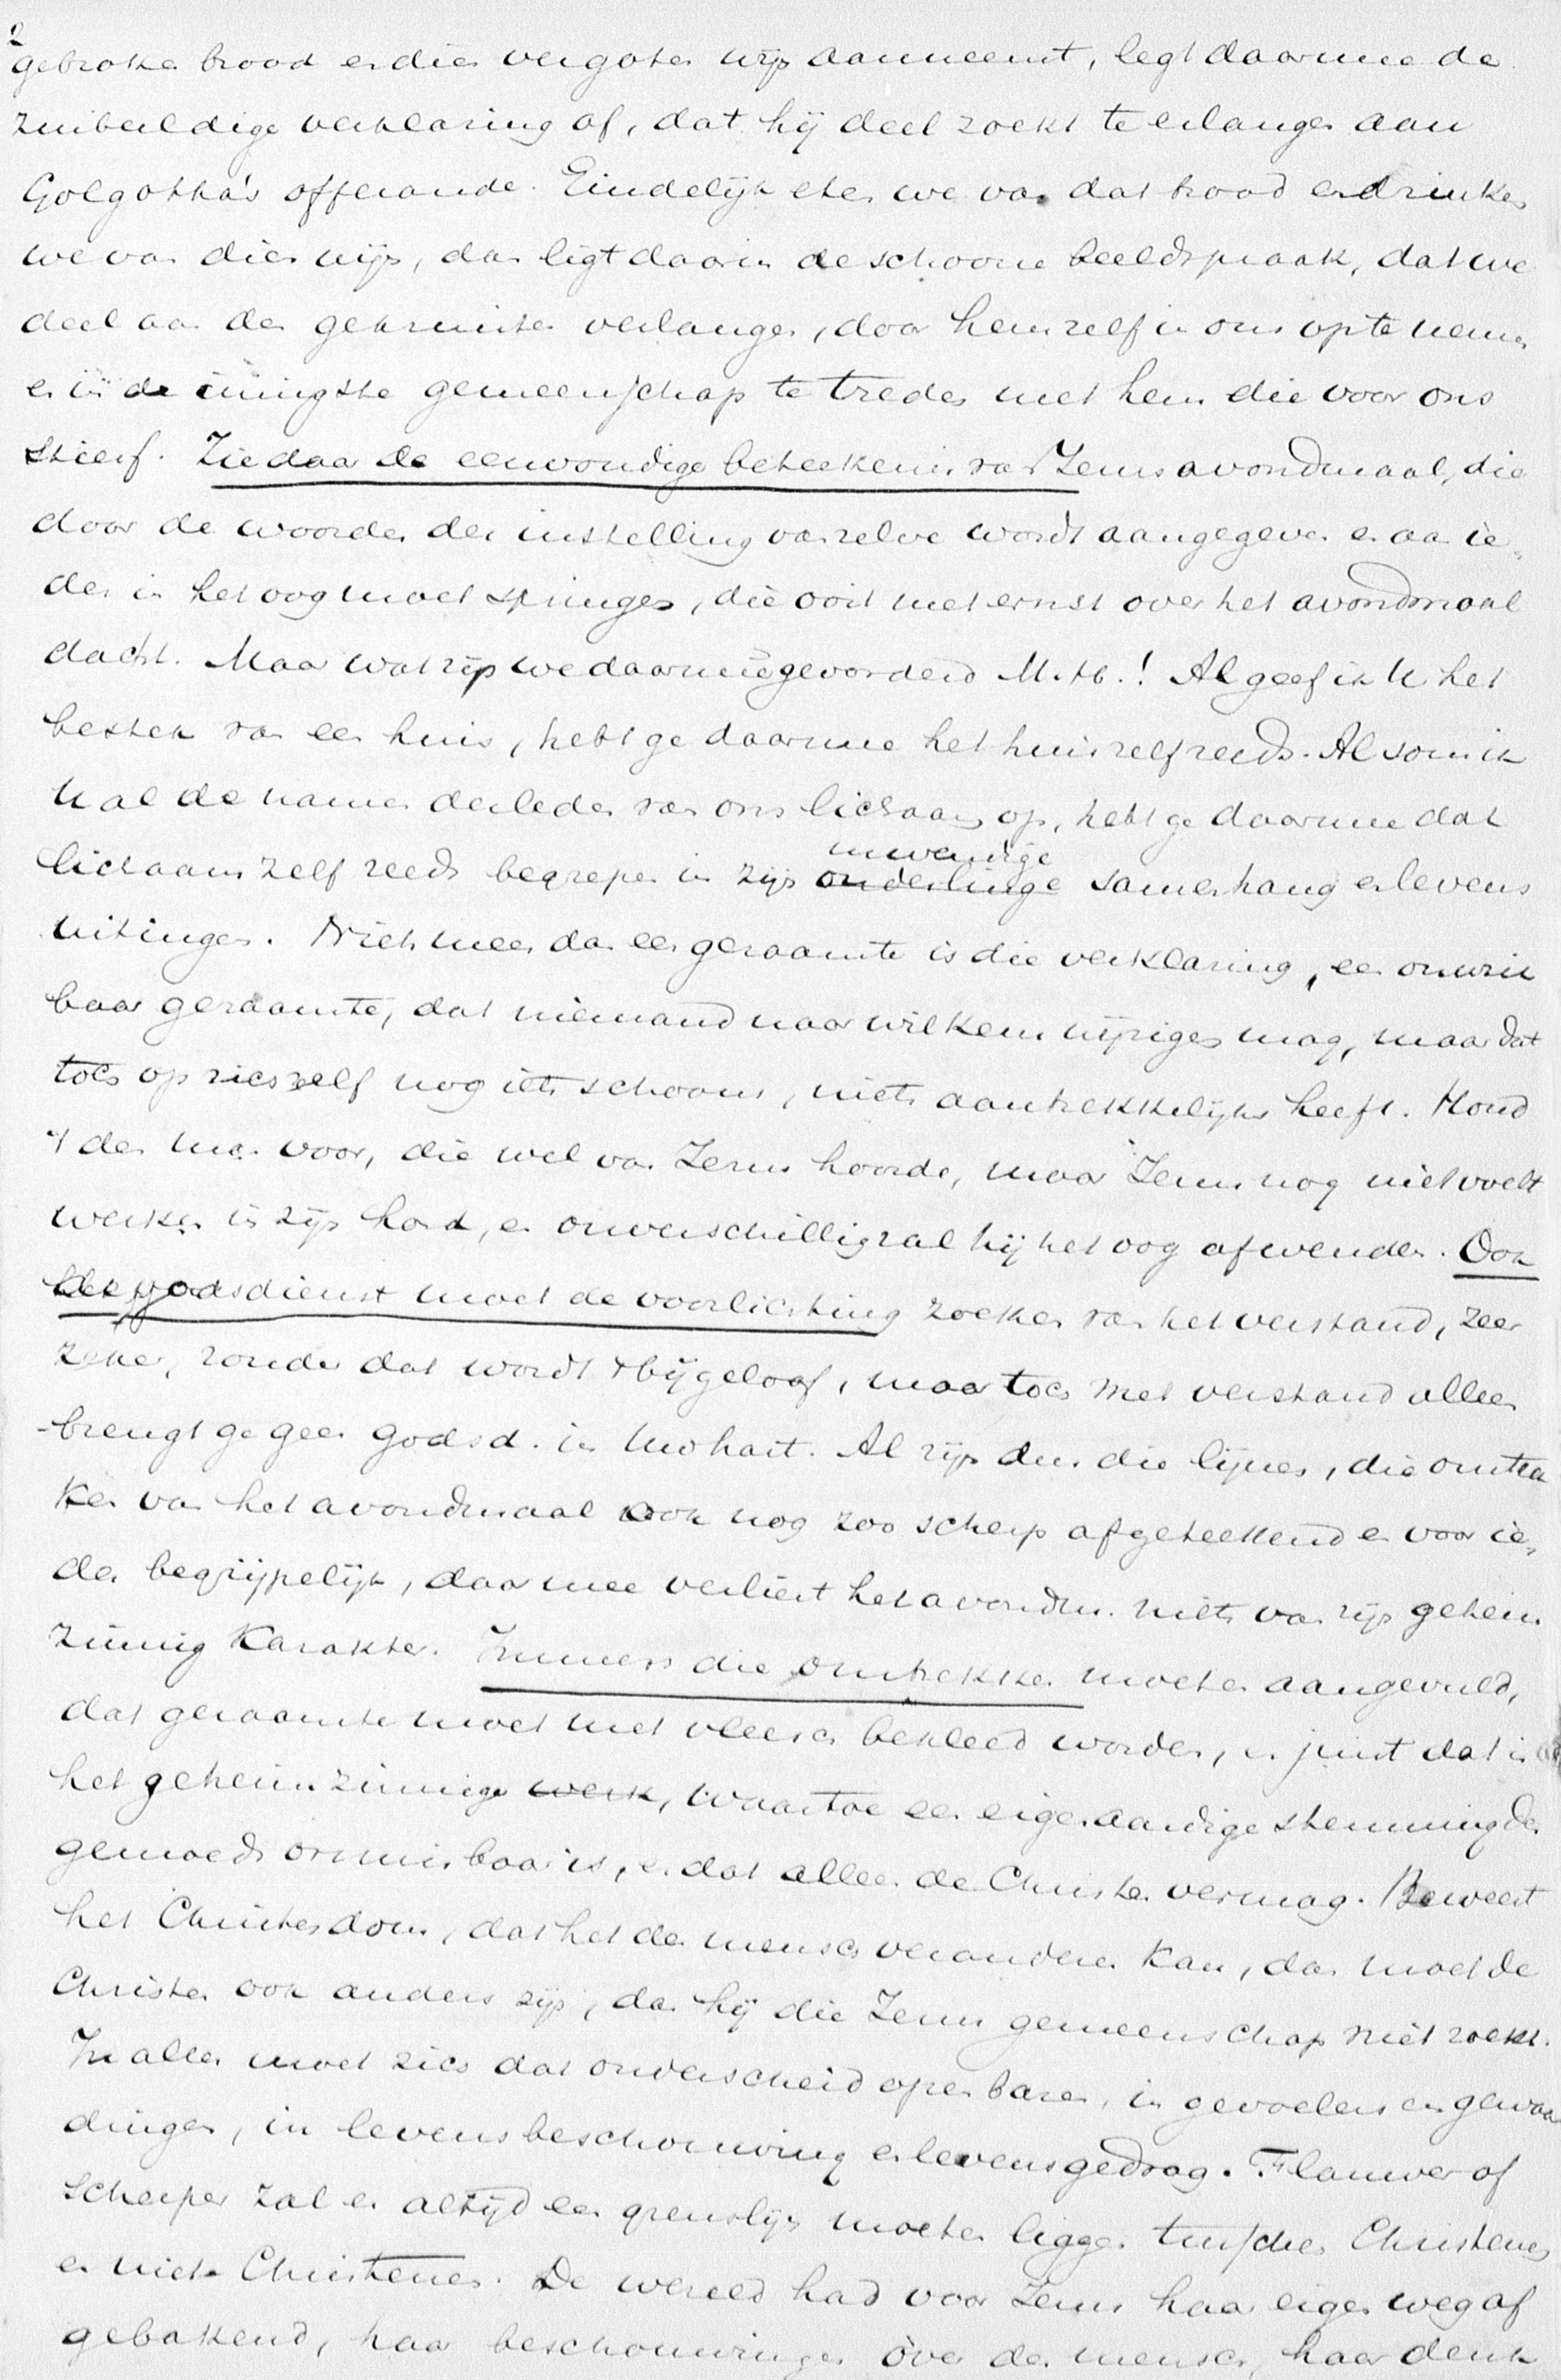 2
gebroken brood en dien vergoten wijn aanneemt, legt daarmee de
zinbeeldige verklaring af, dat hij deel zoekt te erlangen aan
Golgotha's offerande. Eindelijk eten we van dat brood en drinken
we van dien wijn, dan ligt daarin de schoone beeldspraak, dat we
deel aan den gekruisten verlangen, door hem zelf in ons op te nemen
en in de innigste gemeenschap te treden met hem die voor ons
stierf. Ziedaar de eenvoudige beteekenis van Jezus avondmaal, die
door de woorden der instelling van zelve wordt aangegeven en aan ie-
der in het oog moet springen, die ooit met ernst over het avondmaal
dacht. Maar wat zijn we daarmee gevorderd M. H.! Al geef ik U het
bestek van een huis, hebt ge daarmee het huis zelf reeds. Al som ik
U al de namen der leden van ons lichaam op, hebt ge daarmee dat
inwendige
lichaam zelf reeds begrepen in zijn onderlinge samenhang en levens
uitingen. Niets meer dan een geraamte is die verklaring, een onwrik
baar geraamte, dat niemand naar willekeur wijzigen mag, maar dat
toch op zich zelf nog iets schoons, niets aantrekkelijks heeft. Houd
't den man voor, die wel van Jezus hoorde, maar Jezus nog niet voelt
werken in zijn hart, en onverschillig zal hij het oog afwenden. Ook
de godsdienst moet de voorlichting zoeken van het verstand, zeer
zeker, zonder dat wordt z bijgeloof, maar toch met verstand alleen
brengt ge geen godsd. in Uw hart. Al zijn dus die lijnen, die omtrek
ken van het avondmaal ook nog zoo scherp afgeteekend en voor ie-
der begrijpelijk, daarmee verliest het avondm. niets van zijn geheim
zinnig karakter. Immers die omtrekken moeten aangevuld,
dat geraamte moet met vleesch bekleed worden, en juist dat is
het geheimzinnige werk, waartoe een eigenaardige stemming des
gemoeds onmisbaar is, en dat alleen de Christen vermag. Beweert
het Christendom, dat het den mensch veranderen kan, dan moet de
Christen ook anders zijn, dan hij die Jezus gemeenschap niet zoekt.
In alles moet zich dat onderscheid openbaren, in gevoelens en gewaar
dingen, in levensbeschouwing en levensgedrag. Flauwer of
scherper zal er altijd een grenslijn moeten liggen tusschen Christenen
en niet-Christenen. De wereld had voor Jezus haar eigen weg af
gebakend, haar beschouwingen over den mensch, haar denk